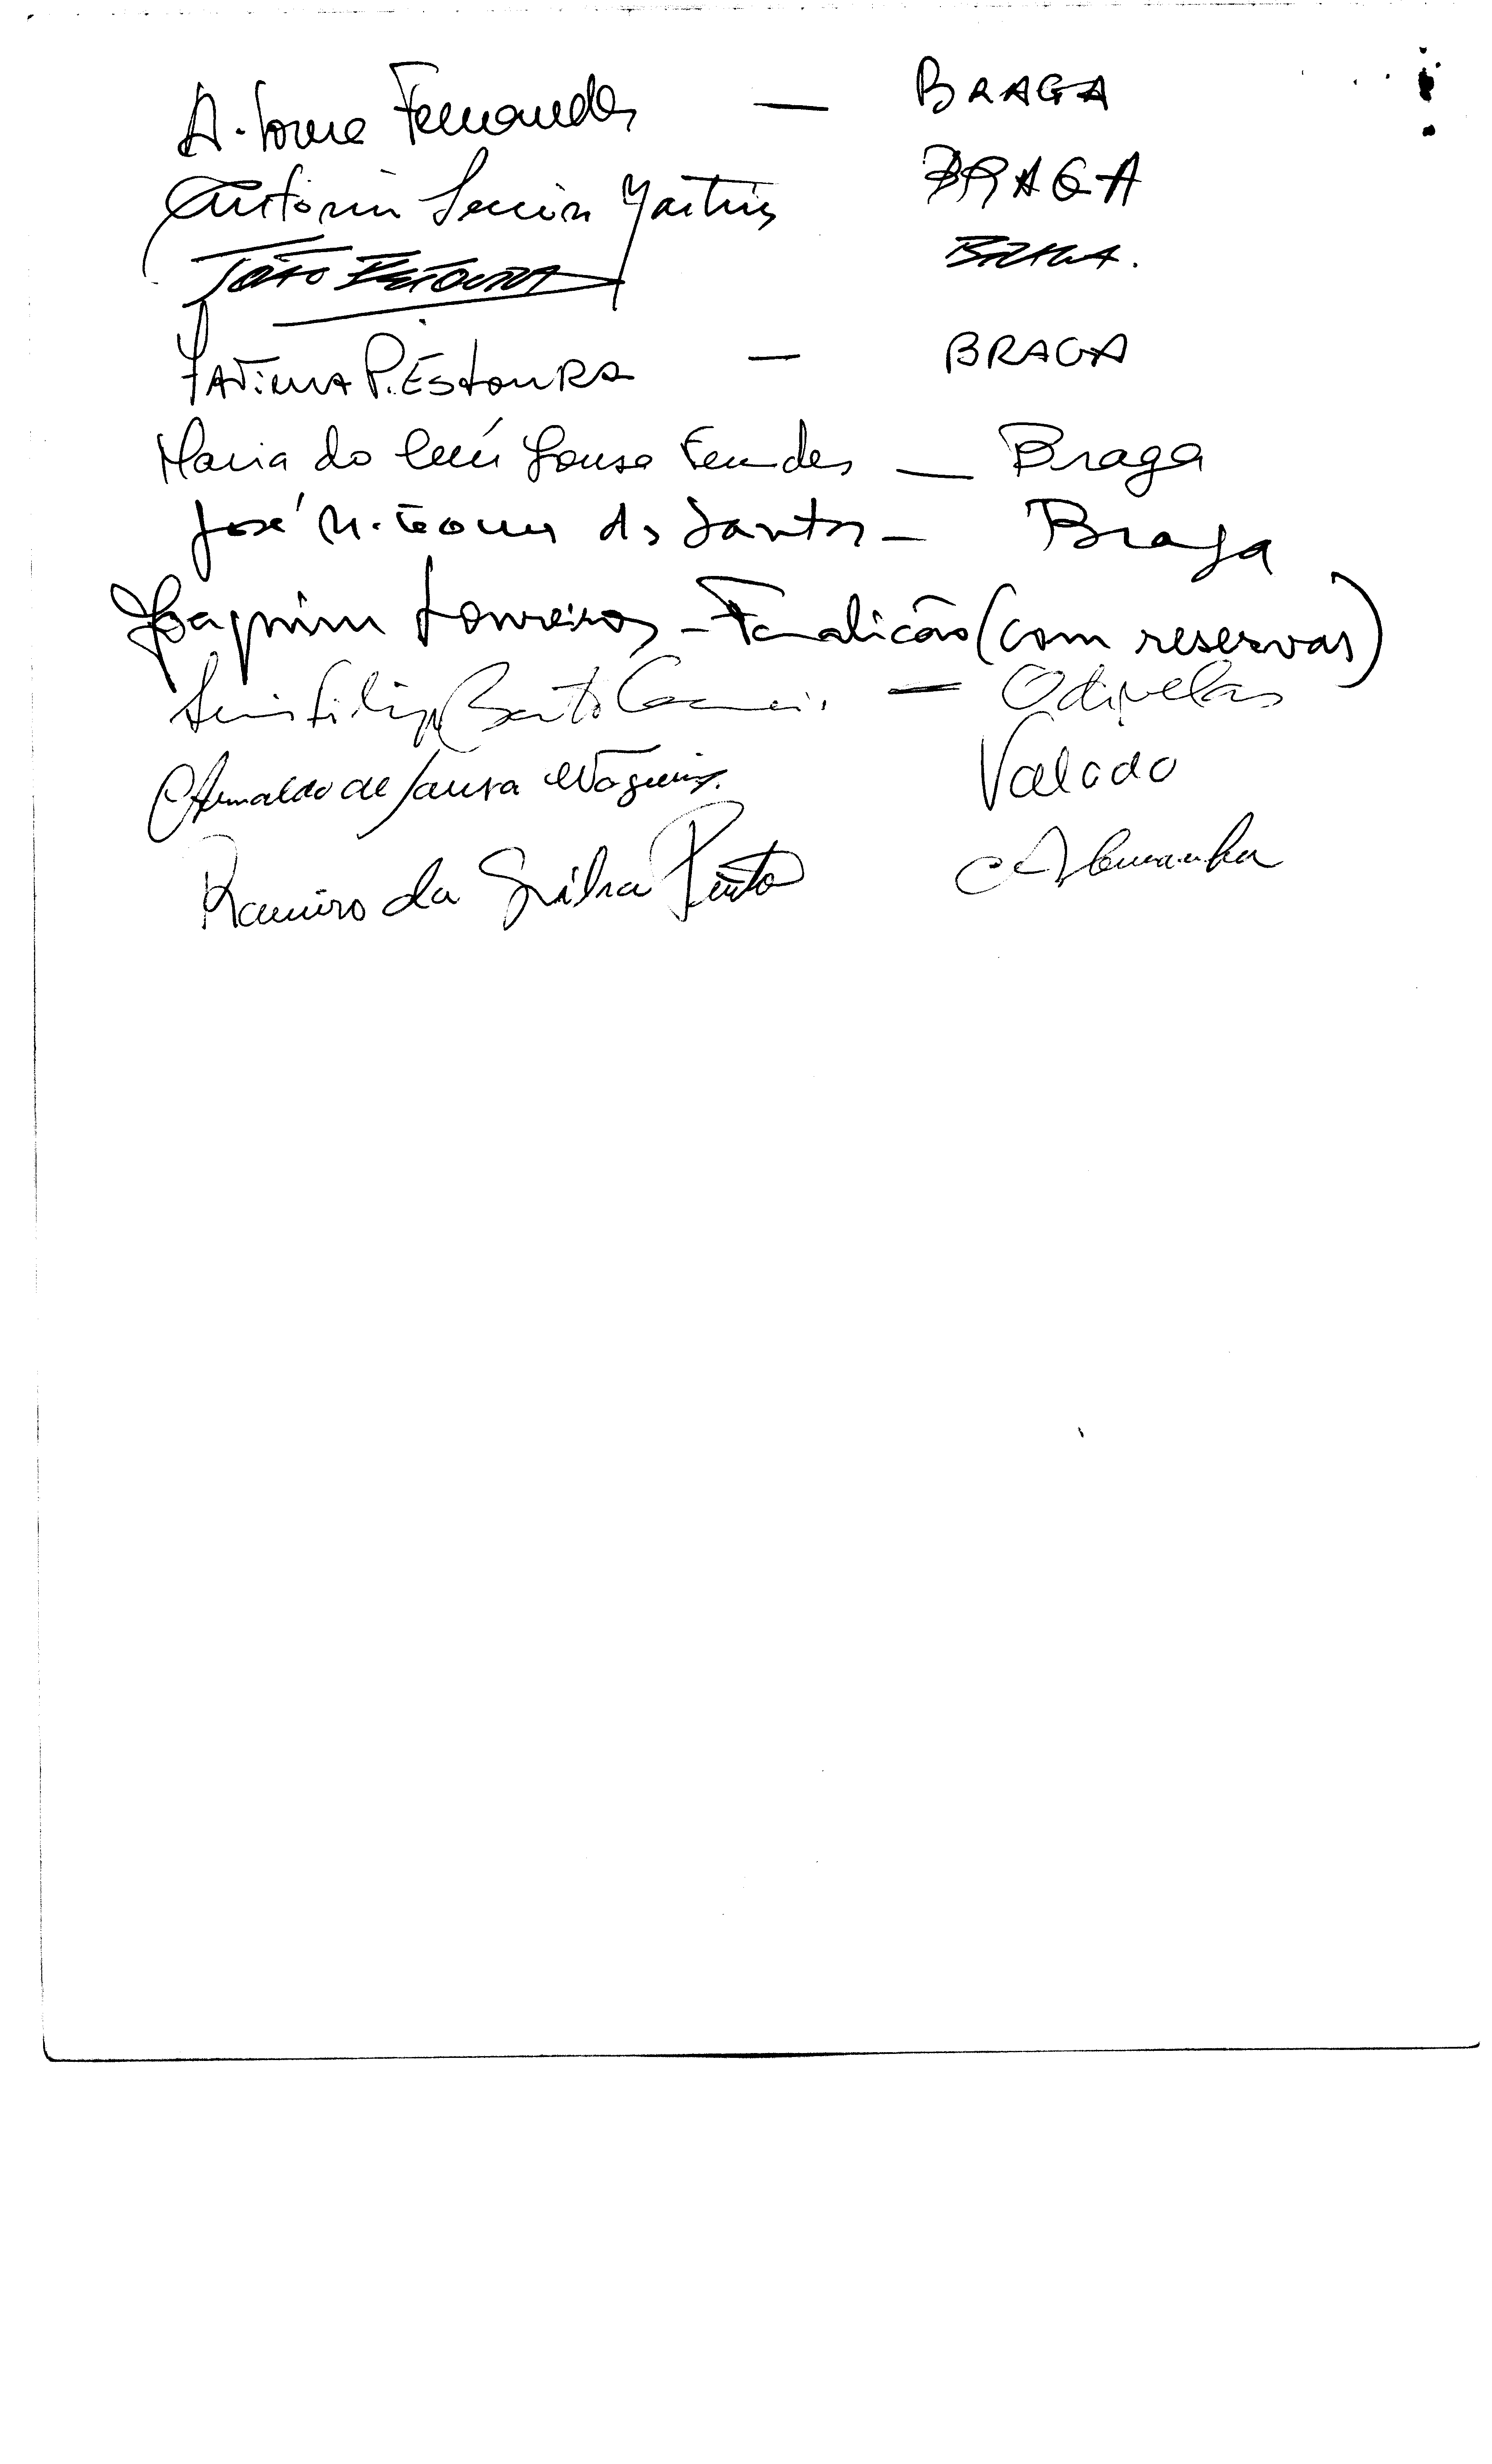 A. Fernandes — BRAGA
António Martins BRAGA
JOÃO BRAGA.
FATIMA P. ESTOURA — BRAGA
Maria do Céu Sousa Fernandes — Braga
José M. dos Santos — Braga
Joaquim Loureiro — Famalicão (com reservas)
Luis Filipe Bento — Odivelas
Arnaldo de Sousa Nogueira Valado
Ramiro da Silva Pinto Alemanha